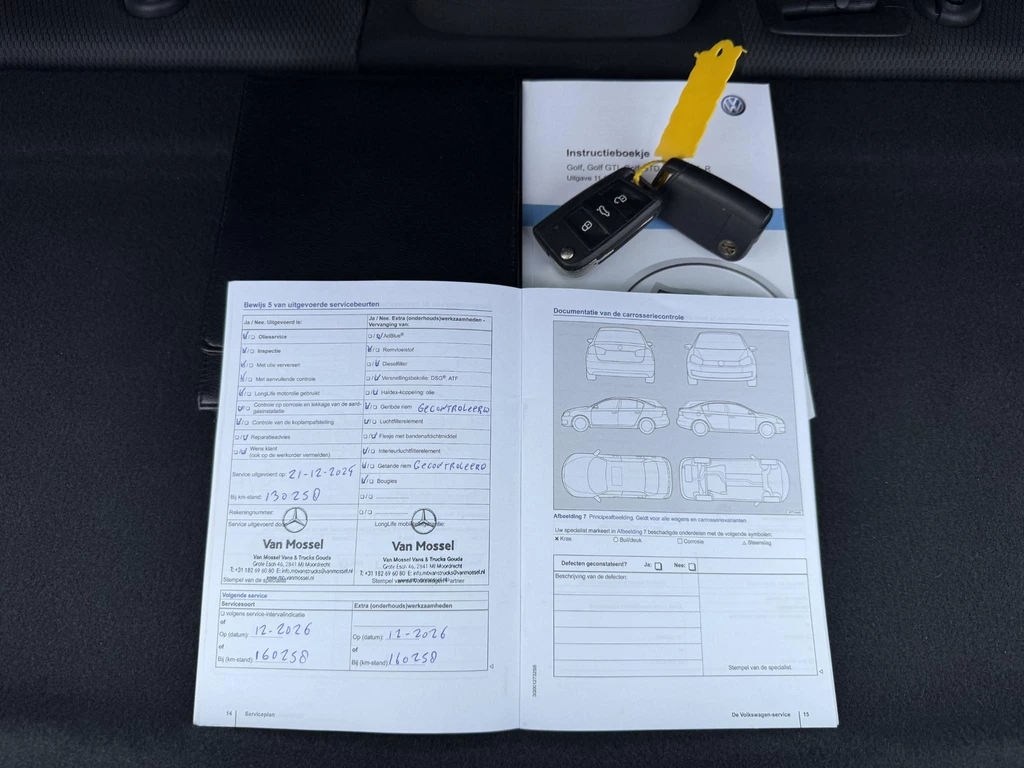 Instructieboekje
Golf, Golf GTI, Golf GTD, R
Uitgave 11
Bewijs 5 van uitgevoerde servicebeurten
Ja / Nee. Uitgevoerd is:
☑/☐ Olieservice
☑/☐ Inspectie
☑/☐ Met olie verversen
☑/☐ Met aanvullende controle
☑/☐ LongLife motorolie gebruikt
☑/☐ Controle op corrosie en lekkage van de aard-
gasinstallatie
☑/☐ Controle van de koplampafstelling
☐/☑ Reparatieadvies
☐/☑ Wens klant
(ook op de werkorder vermelden)
Service uitgevoerd op: 21-12-2024
Bij km-stand: 130250
Rekeningnummer:
Service uitgevoerd door:
Van Mossel
Van Mossel Vans & Trucks Gouda
Grote Esch 46, 2841 MJ Moordrecht
T: +31 182 69 60 80 E: info.movanstrucks@vanmossel.nl
Stempel van de specialist
Ja / Nee. Extra (onderhouds)werkzaamheden -
Vervanging van:
☐/☑ AdBlue®
☑/☐ Remvloeistof
☐/☑ Dieselfilter
☐/☑ Versnellingsbakolie: DSG®, ATF
☐/☑ Haldex-koppeling: olie
☑/☐ Geribde riem GECONTROLEERD
☑/☐ Luchtfilterelement
☐/☑ Flesje met bandenafdichtmiddel
☑/☐ Interieurluchtfilterelement
☑/☐ Getande riem GECONTROLEERD
☑/☐ Bougies
☐/☐
☐/☐
Van Mossel
Van Mossel Vans & Trucks Gouda
Grote Esch 46, 2841 MJ Moordrecht
T: +31 182 69 60 80 E: info.movanstrucks@vanmossel.nl
Volgende service
Servicesoort
☐ volgens service-intervalindicatie
of
Op (datum): 12-2026
of
Bij (km-stand): 160250
Extra (onderhouds)werkzaamheden
Op (datum): 12-2026
of
Bij (km-stand): 160250
14 | Serviceplan
Documentatie van de carrosseriecontrole
Afbeelding 7 Principeafbeelding. Geldt voor alle wagens en carrosserievarianten.
Uw specialist markeert in Afbeelding 7 beschadigde onderdelen met de volgende symbolen:
X Kras ○ Buil/deuk □ Corrosie △ Steenslag
Defecten geconstateerd? Ja: ☐ Nee: ☐
Beschrijving van de defecten:
Stempel van de specialist
De Volkswagen-service | 15